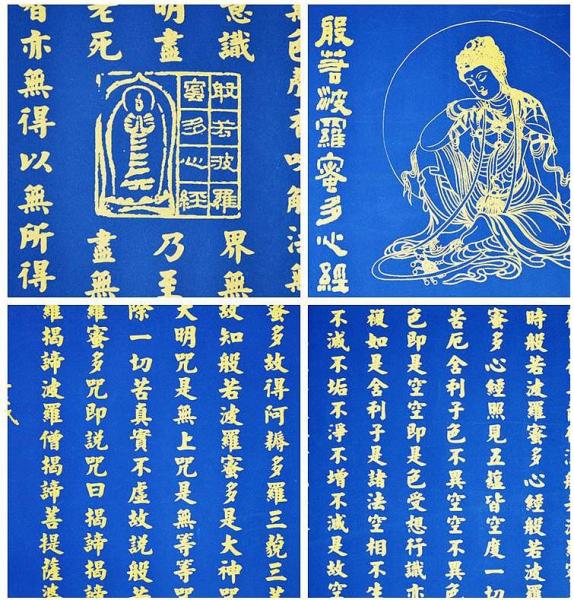 意識界無
明盡乃至
老死盡無
智亦無得以無所得
般若波羅
蜜多心經
般若波羅蜜多心經
蜜多故得阿耨多羅三藐三
故知般若波羅蜜多是大神咒
大明咒是無上咒是無等等咒
除一切苦真實不虛故說般若
羅蜜多咒即說咒曰揭諦揭諦
羅揭諦波羅僧揭諦菩提薩婆
時般若波羅蜜多心經般若波羅
蜜多心經照見五蘊皆空度一切
苦厄舍利子色不異空空不異色
色即是空空即是色受想行識亦
復如是舍利子是諸法空相不生
不滅不垢不淨不增不減是故空